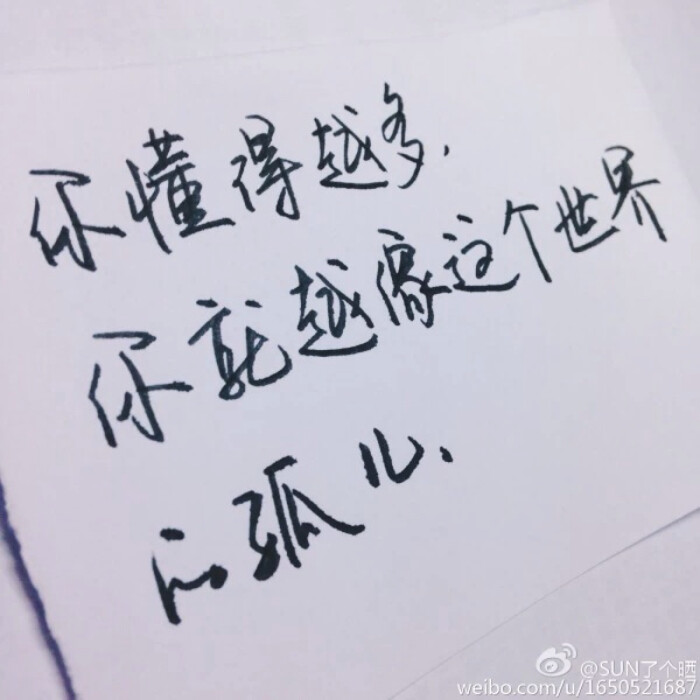 你懂得越多.
你就越像这个世界
的孤儿.
@SUN了个晒
weibo.com/u/1650521687